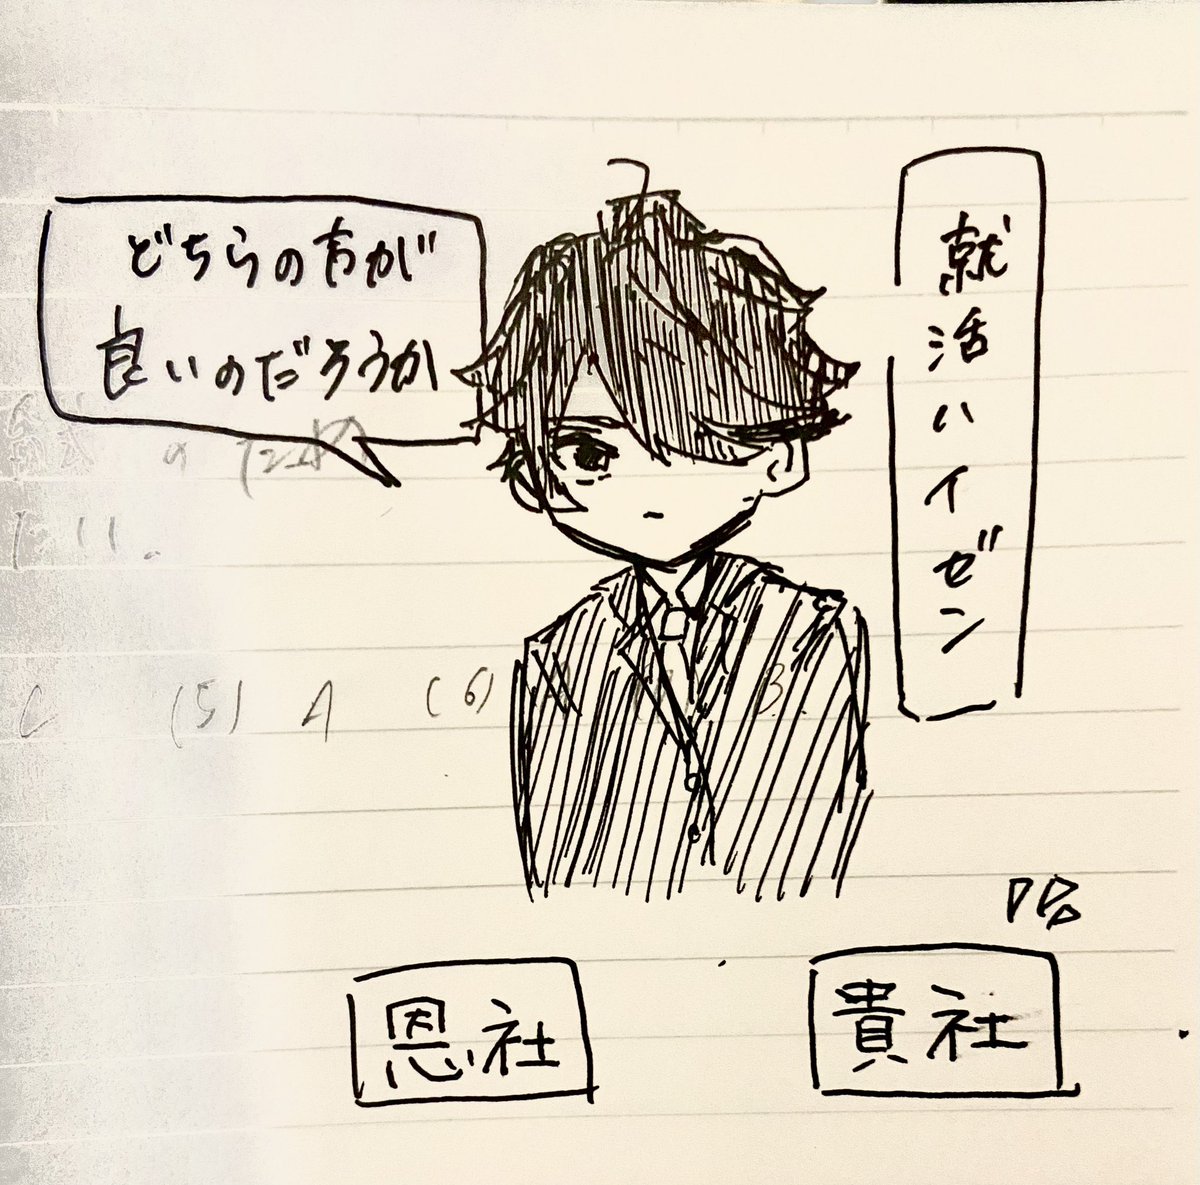 どちらの方が
良いのだろうか
就活ハイゼン
のため
C (5) A (6) B
恩社
貴社